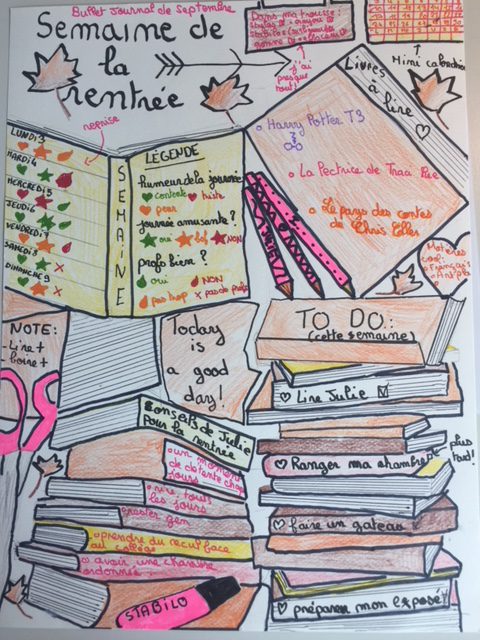 Bullet Journal de Septembre
Semaine de
la
rentrée
Dans ma trousse:
j'ai
presque
tout!
Mini calendrier
Livres
à lire ♡
Harry Potter T3
La Lectrice de Traci
Le pays des contes
de Chris
reprise
LUNDI 3
MARDI 4
MERCREDI 5
JEUDI 6
VENDREDI 7
SAMEDI 8
DIMANCHE 9
SEMAINE
LÉGENDE
humeur de la journée
content triste
peur
journée amusante?
oui bof NON
profs bien?
oui NON
pas trop x pas de profs
Matières
cool:
Français
NOTE:
- Lire +
- boire +
Today
is
a good
day!
TO DO:
(cette semaine)
♡ Lire Julie ☑
♡ Ranger ma chambre
plus
tard!
♡ faire un gateau
♡ préparer mon exposé
Conseils de Julie
pour la rentrée
un moment
de détente chaque
jours
rire tous
les jours
rester zen
prendre du recul face
au collège
avoir une chambre
ordonnée
STABILO